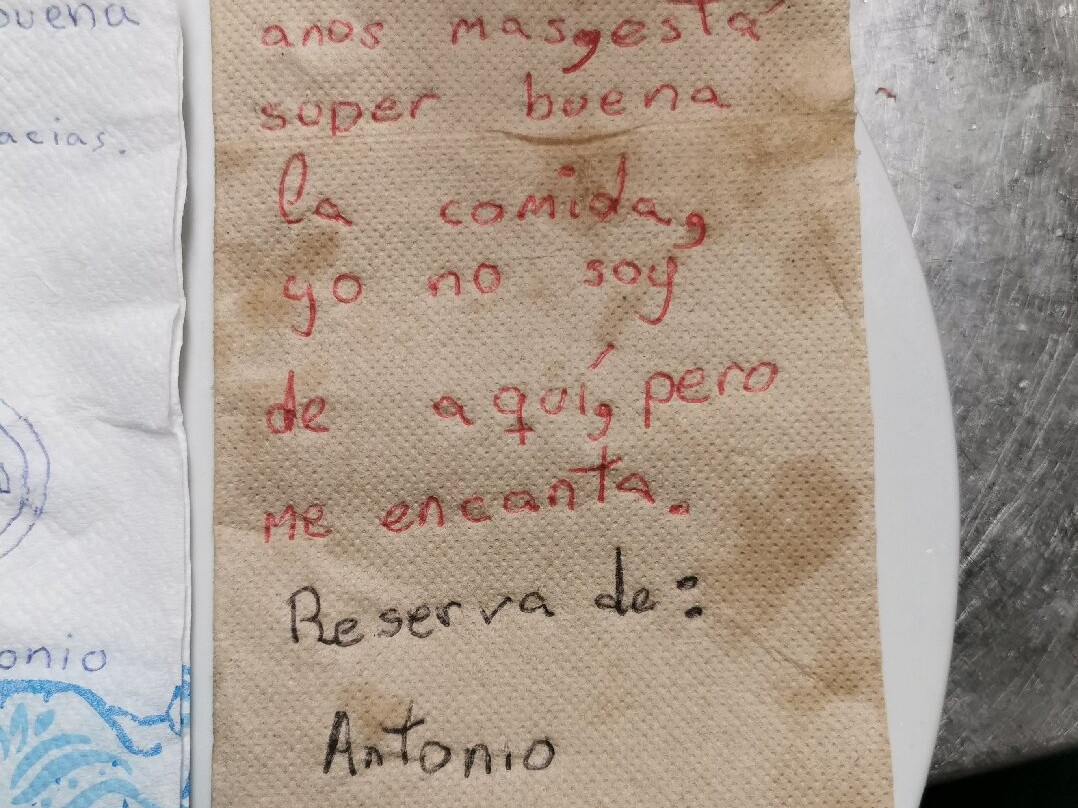 buena
acias.
onio
anos mas, está
super buena
la comida,
yo no soy
de aquí, pero
me encanta.
Reserva de:
Antonio